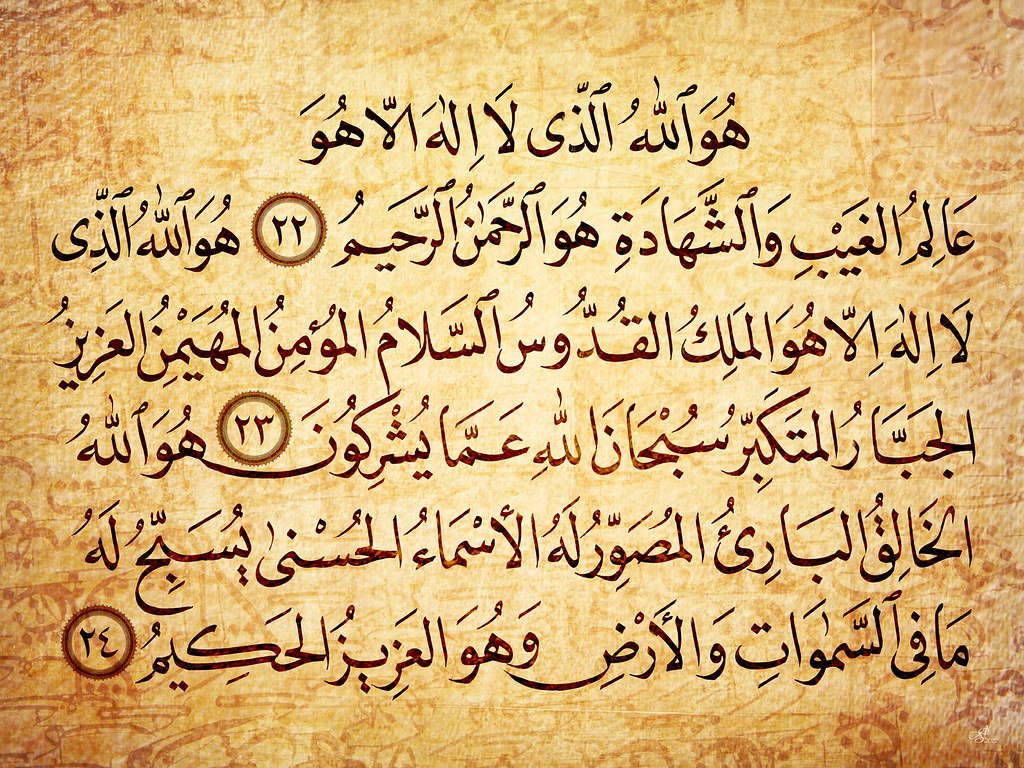 هُوَ ٱللّٰهُ ٱلَّذِى لَا اِلٰهَ اِلّا هُوَ
عَالِمُ الغَيْبِ وَٱلشَّهَادَةِ هُوَ ٱلرَّحْمٰنُ ٱلرَّحِيمُ ٢٢ هُوَ ٱللّٰهُ ٱلَّذِى
لَا اِلٰهَ اِلّا هُوَ المَلِكُ القُدُّوسُ ٱلسَّلَامُ المُؤمِنُ المُهَيْمِنُ العَزِيزُ
الجَبَّارُ المُتَكَبِّرُ سُبْحَانَ اللهِ عَمَّا يُشْرِكُونَ ٢٣ هُوَ ٱللّٰهُ
الخَالِقُ البَارِئُ المُصَوِّرُ لَهُ الأسْمَاءُ الحُسْنىٰ يُسَبِّحُ لَهُ
مَا فِى ٱلسَّمٰوَاتِ وَالأَرْضِ وَهُوَ العَزِيزُ الحَكِيمُ ٢٤